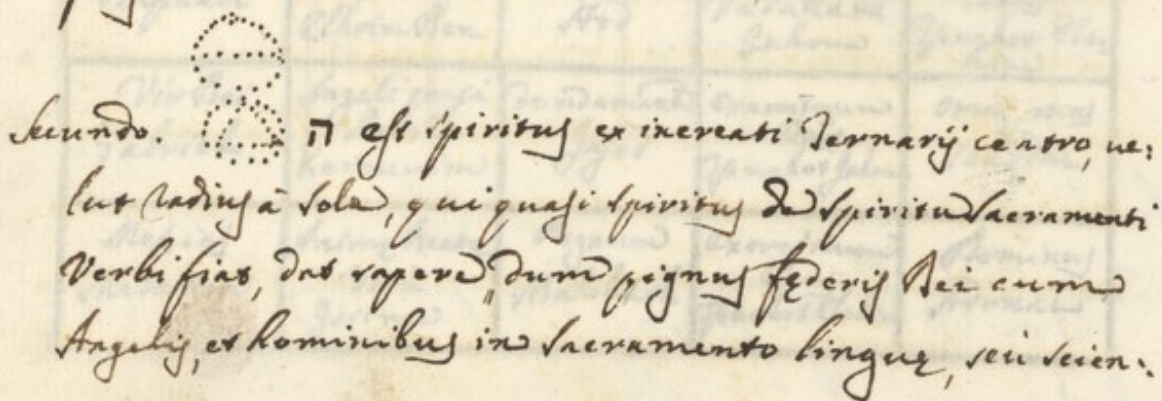 Secundo. ה est spiritus ex increati Ternarij centro, ve:
lut radius à sole, qui quasi spiritus de spiritu Sacramenti
Verbi fiat, dat sapere, dum pignus fęderis Dei cum
Angelis, et hominibus in sacramento linguę, seu scien: